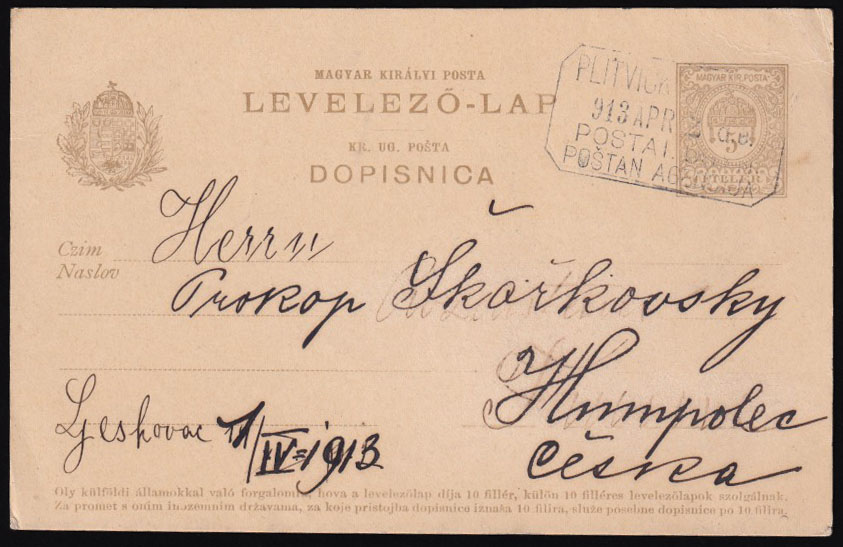 MAGYAR KIRÁLYI POSTA
LEVELEZŐ-LAP
KR. UG. POŠTA
DOPISNICA
PLITVICK
913 APR 2
POSTAI
POŠTAN
MAGYAR KIR. POSTA
5
Czim
Naslov
Herrn
Prokop Škařkovsky
Humpolec
Česka
Ljeskovac 11/IV=1913
Oly külföldi államokkal való forgalomra, hova a levelezőlap díja 10 fillér, külön 10 filléres levelezőlapok szolgálnak.
Za promet s onim inozemnim državama, za koje pristojba dopisnice iznaša 10 filira, služe posebne dopisnice po 10 filira.